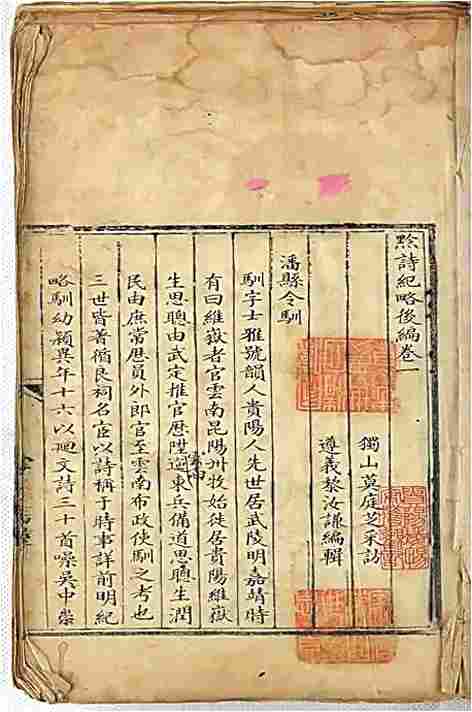 黔詩紀略後編卷一
獨山莫庭芝采訪
遵義黎汝謙編輯
潘縣令馴
馴字士雅號韻人貴陽人先世居武陵明嘉靖時
有曰維嶽者官雲南昆陽州牧始徙居貴陽維嶽
生思聰由武定推官厯陞遼東兵備道思聰生潤
民由庶常厯員外郎官至雲南布政使馴之考也
三世皆著循良祠名宦以詩稱于時事詳前明紀
略馴幼穎異年十六以廻文詩三十首噪吳中崇